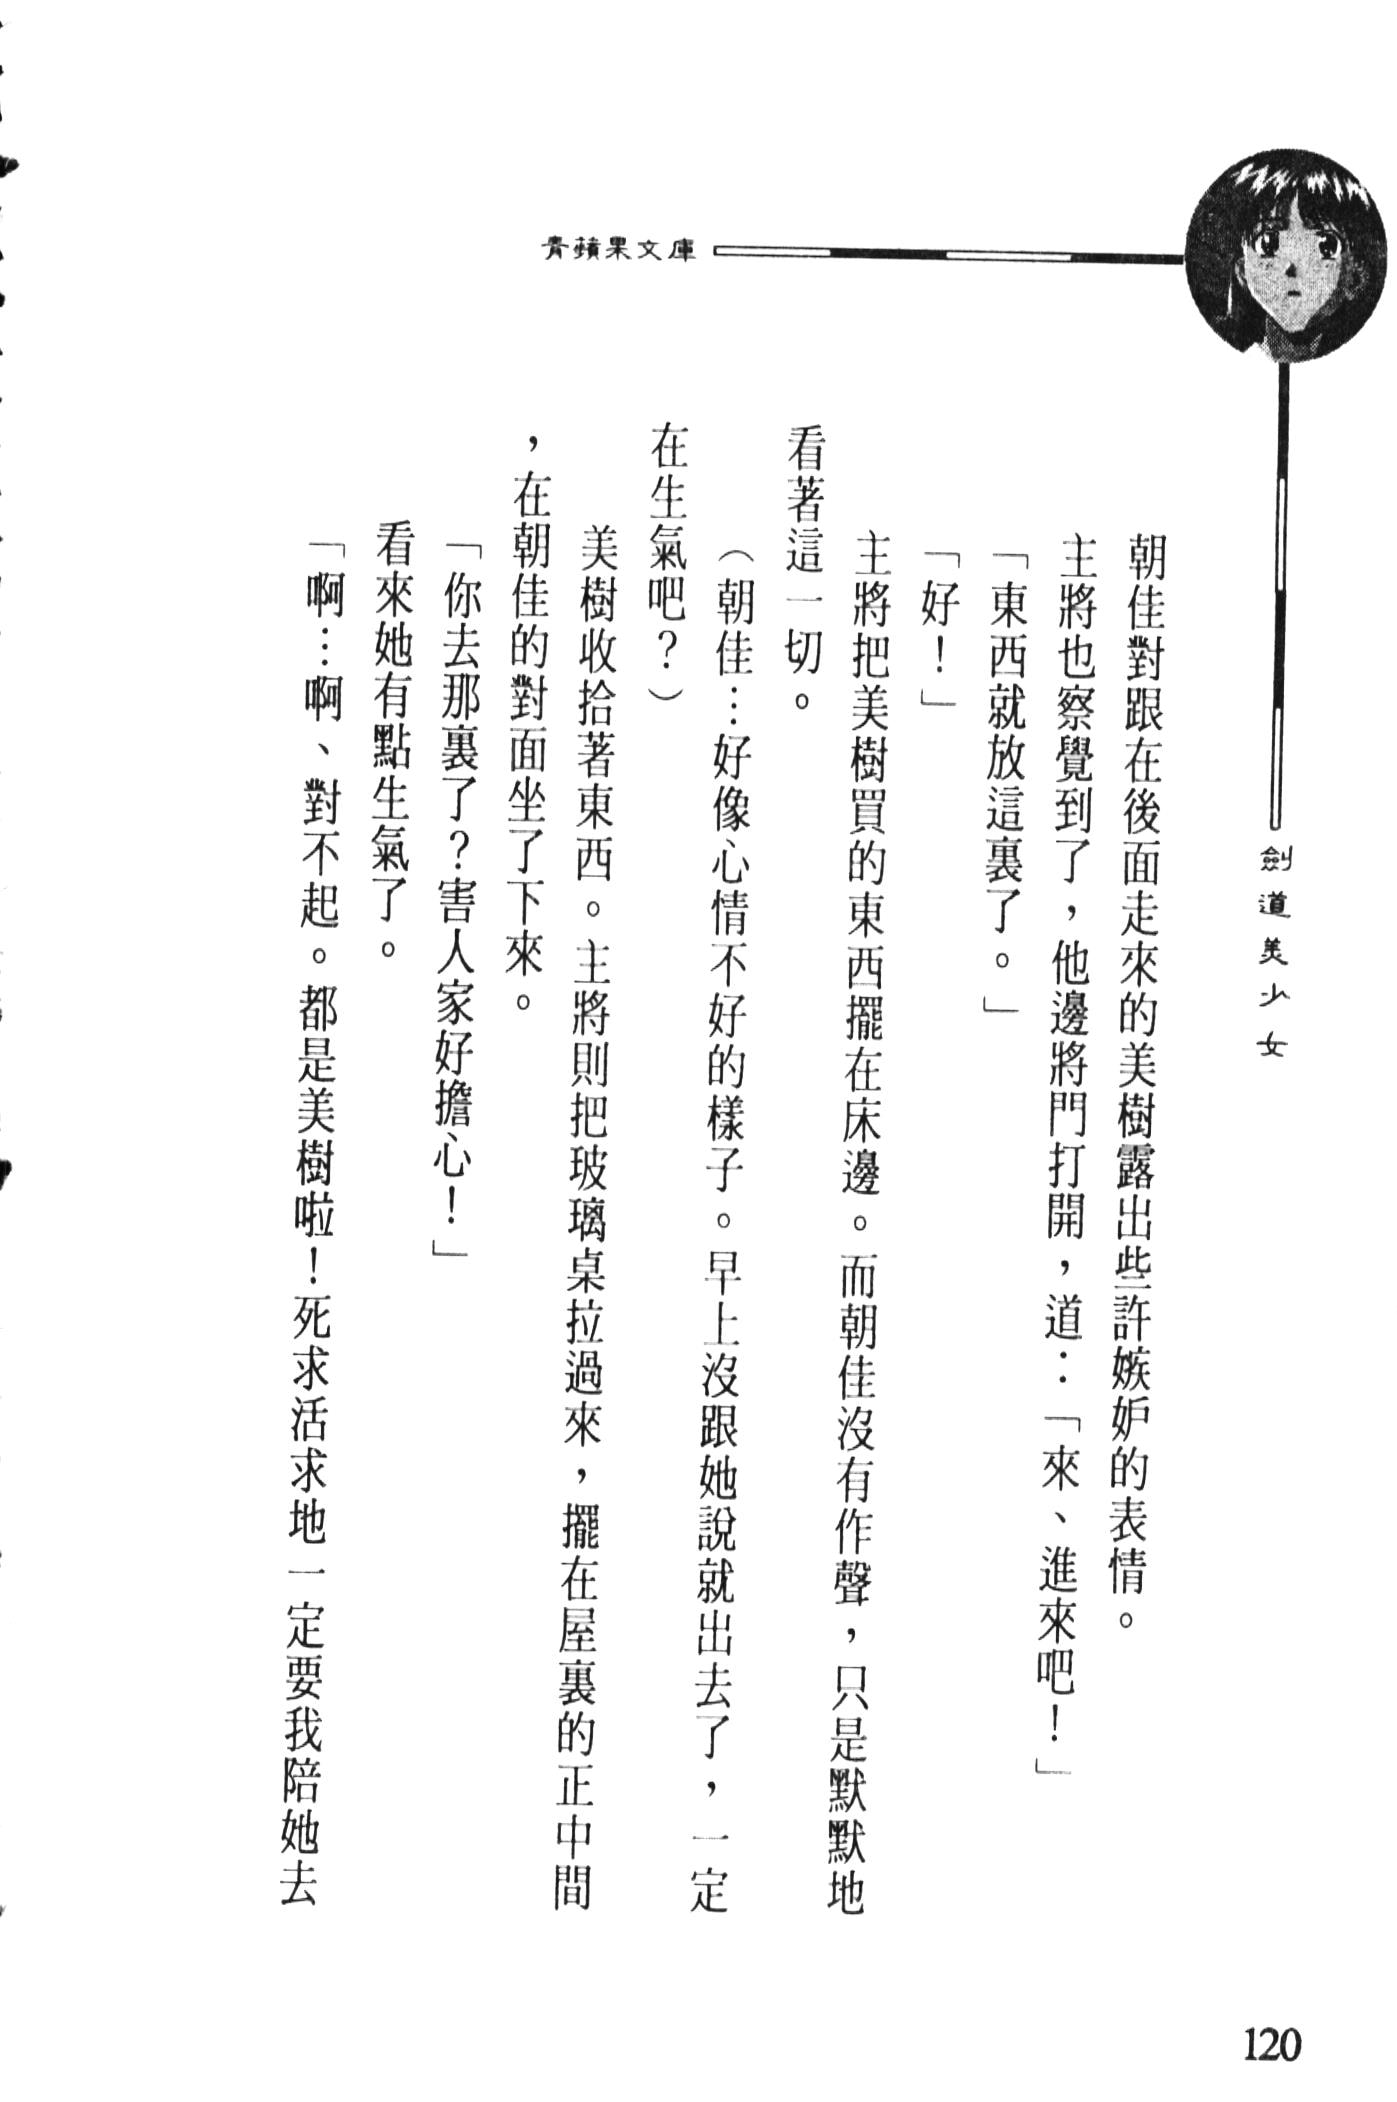 青蘋果文庫
劍道美少女
朝佳對跟在後面走來的美樹露出些許嫉妒的表情。
主將也察覺到了，他邊將門打開，道：「來、進來吧！」
「東西就放這裏了。」
「好！」
主將把美樹買的東西擺在床邊。而朝佳沒有作聲，只是默默地
看著這一切。
（朝佳…好像心情不好的樣子。早上沒跟她說就出去了，一定
在生氣吧？）
美樹收拾著東西。主將則把玻璃桌拉過來，擺在屋裏的正中間
，在朝佳的對面坐了下來。
「你去那裏了？害人家好擔心！」
看來她有點生氣了。
「啊…啊、對不起。都是美樹啦！死求活求地一定要我陪她去
120